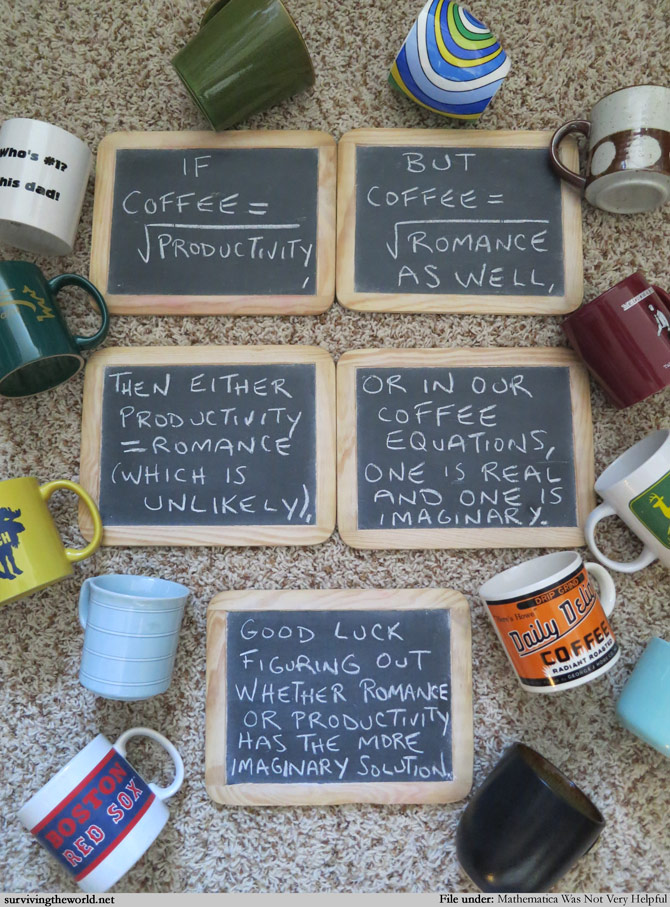 IF
COFFEE =
√PRODUCTIVITY,
BUT
COFFEE =
√ROMANCE
AS WELL,
THEN EITHER
PRODUCTIVITY
= ROMANCE
(WHICH IS
UNLIKELY),
OR IN OUR
COFFEE
EQUATIONS,
ONE IS REAL
AND ONE IS
IMAGINARY.
GOOD LUCK
FIGURING OUT
WHETHER ROMANCE
OR PRODUCTIVITY
HAS THE MORE
IMAGINARY SOLUTION.
Who's #1?
his dad!
DRIP GRIND
Here's How
Daily Deli
COFFEE
RADIANT ROASTED
BOSTON
RED SOX
survivingtheworld.net
File under: Mathematica Was Not Very Helpful